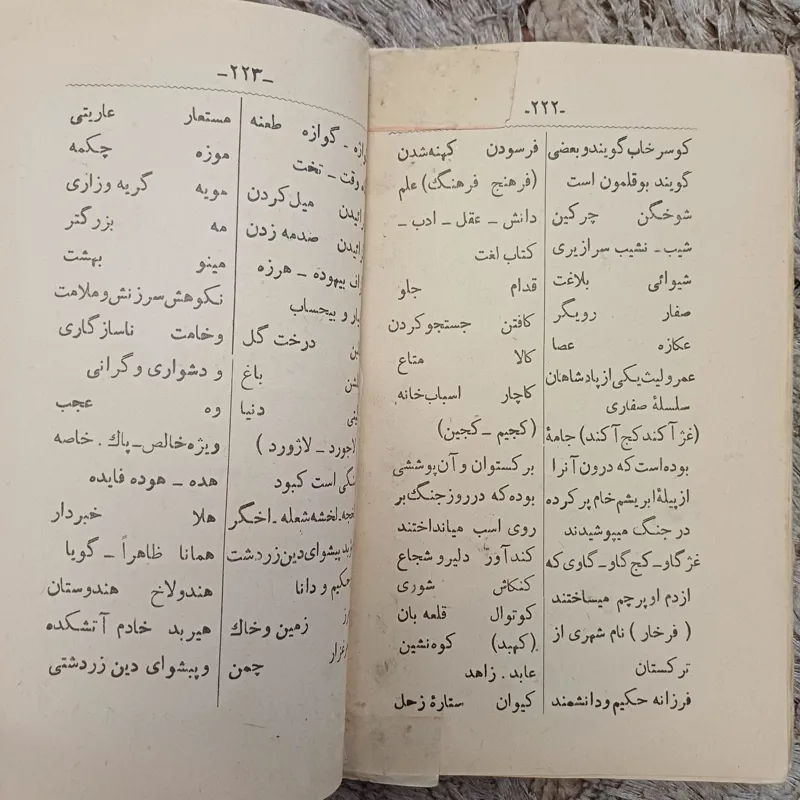 -۲۲۲-
کوسرخاب گویند و بعضی
گویند بوقلمون است
شوخگن چرکین
شیب - نشیب سرازیری
شیوائی بلاغت
صفار رویگر
عکازه عصا
عمرولیث یکی از پادشاهان
سلسلهٔ صفاری
(غژ آکند کج آکند) جامهٔ
بوده است که درون آنرا
از پیلهٔ ابریشم خام پر کرده
در جنگ میپوشیدند
غژگاو - کج گاو - گاوی که
ازدم او پرچم میساختند
(فرخار) نام شهری از
ترکستان
فرزانه حکیم و دانشمند
فرسودن کهنه شدن
(فرهنج فرهنگ) علم
دانش - عقل - ادب -
کتاب لغت
قدام جلو
کافتن جستجو کردن
کالا متاع
کاچار اسباب خانه
(کجیم - کجین)
برکستوان و آن پوششی
بوده که در روز جنگ بر
روی اسب میانداختند
کندآور دلیر و شجاع
کنکاش شوری
کوتوال قلعه بان
(کهبد) کوه نشین
عابد . زاهد
کیوان ستارهٔ زحل
-۲۲۳-
ازه - گوازه طعنه
وقت - تخت
ائیدن میل کردن
ائیدن صدمه زدن
اف بیهوده - هرزه
بار و بیحساب
بن درخت گل
شن باغ
دنیا
لاجورد - لاژورد)
نگی است کبود
خجه . لخشه شعله - اخگر
بد پیشوای دین زردشت
حکیم و دانا
ز زمین و خاک
رغزار چمن
مستعار عاریتی
موزه چکمه
مویه گریه و زاری
مه بزرگتر
مینو بهشت
نکوهش سرزنش و ملامت
وخامت ناسازگاری
و دشواری و گرانی
وه عجب
ویژه خالص - پاک . خاصه
هده - هوده فایده
هلا خبردار
همانا ظاهراً - گویا
هندولاخ هندوستان
هیربد خادم آتشکده
و پیشوای دین زردشتی